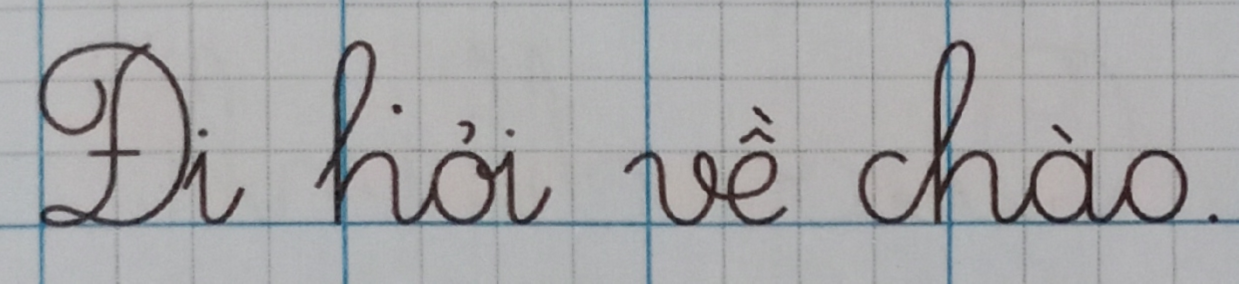 Đi hỏi về chào.